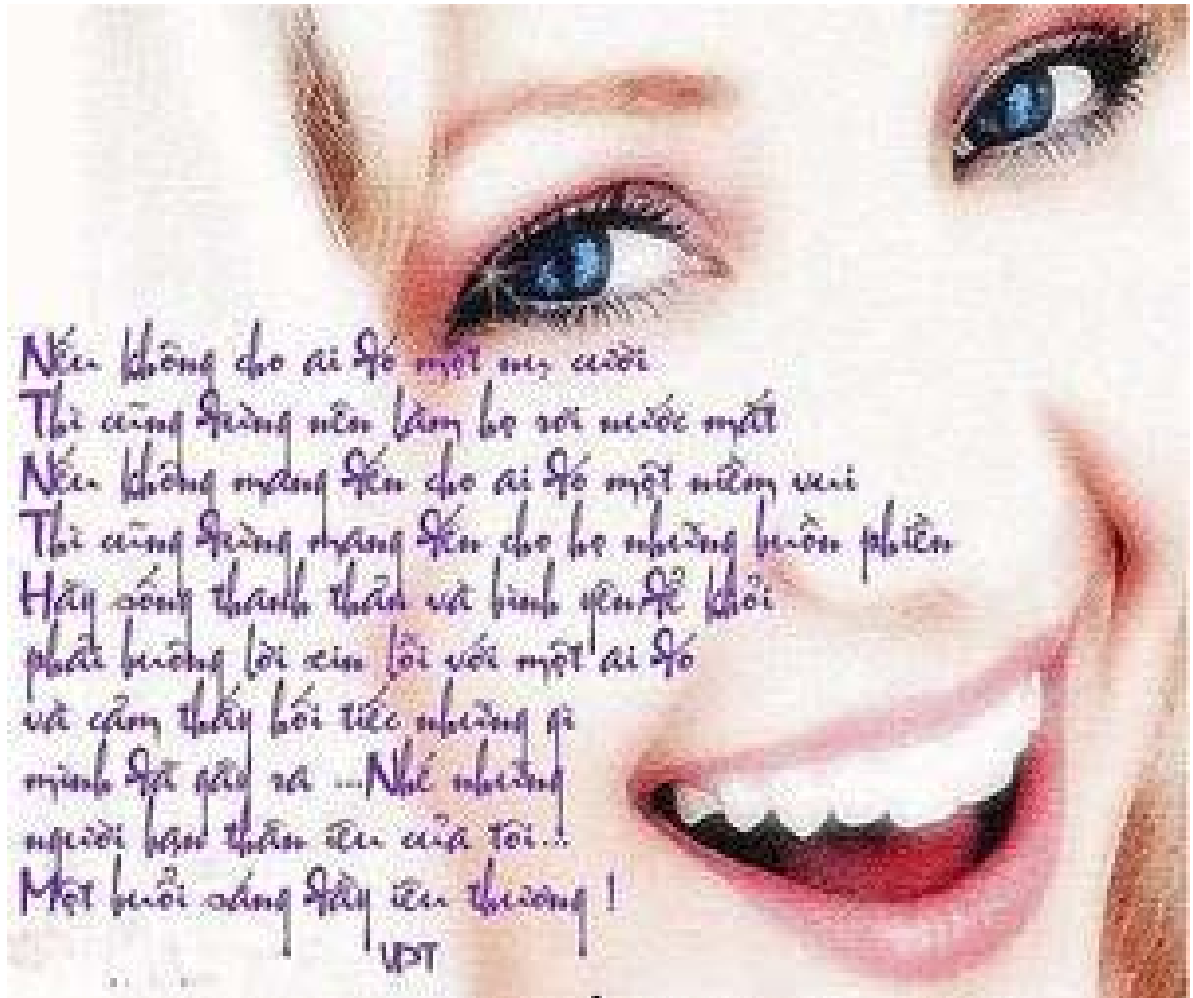 Nếu không cho ai đó một nụ cười
Thì cũng đừng nên làm họ rơi nước mắt
Nếu không mang đến cho ai đó một niềm vui
Thì cũng đừng mang đến cho họ những buồn phiền
Hãy sống thanh thản và bình yên để khỏi
phải buông lời xin lỗi với một ai đó
và cảm thấy hối tiếc những gì
mình đã gây ra ...Nhé những
người bạn thân iêu của tôi...
Một buổi sáng đầy iêu thương !